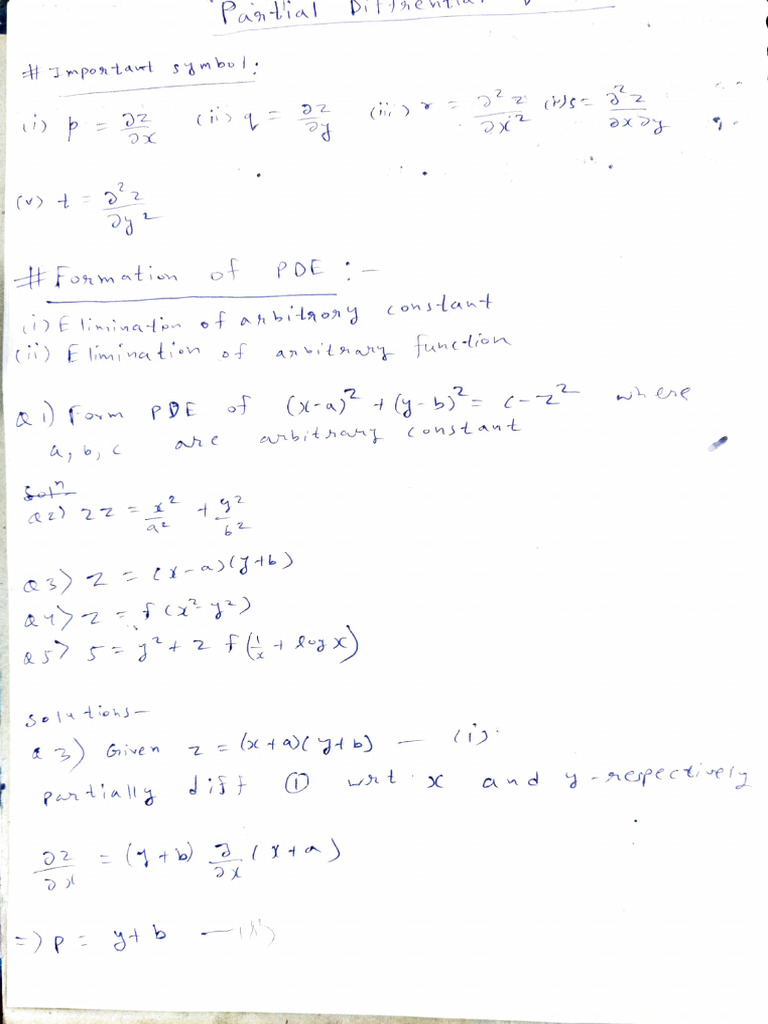 Partial Diffrential
# Important symbol:
(i) p = ∂z/∂x (ii) q = ∂z/∂y (iii) r = ∂²z/∂x² (iv) s = ∂²z/∂x∂y
(v) t = ∂²z/∂y²
# Formation of PDE :-
(i) Elimination of arbitrory constant
(ii) Elimination of arbitrary function
Q1) Form PDE of (x-a)² + (y-b)² = c-z² where
a, b, c are arbitrary constant
Solⁿ
Q2) 2z = x²/a² + y²/b²
Q3) z = (x-a)(y+b)
Q4) z = f(x²-y²)
Q5) 5 = y² + 2 f(1/x + log x)
Solutions-
Q3) Given z = (x+a)(y+b) — (i).
partially diff ① wrt x and y-respectively
∂z/∂x = (y+b) ∂/∂x (x+a)
=> p = y+b — (ii)